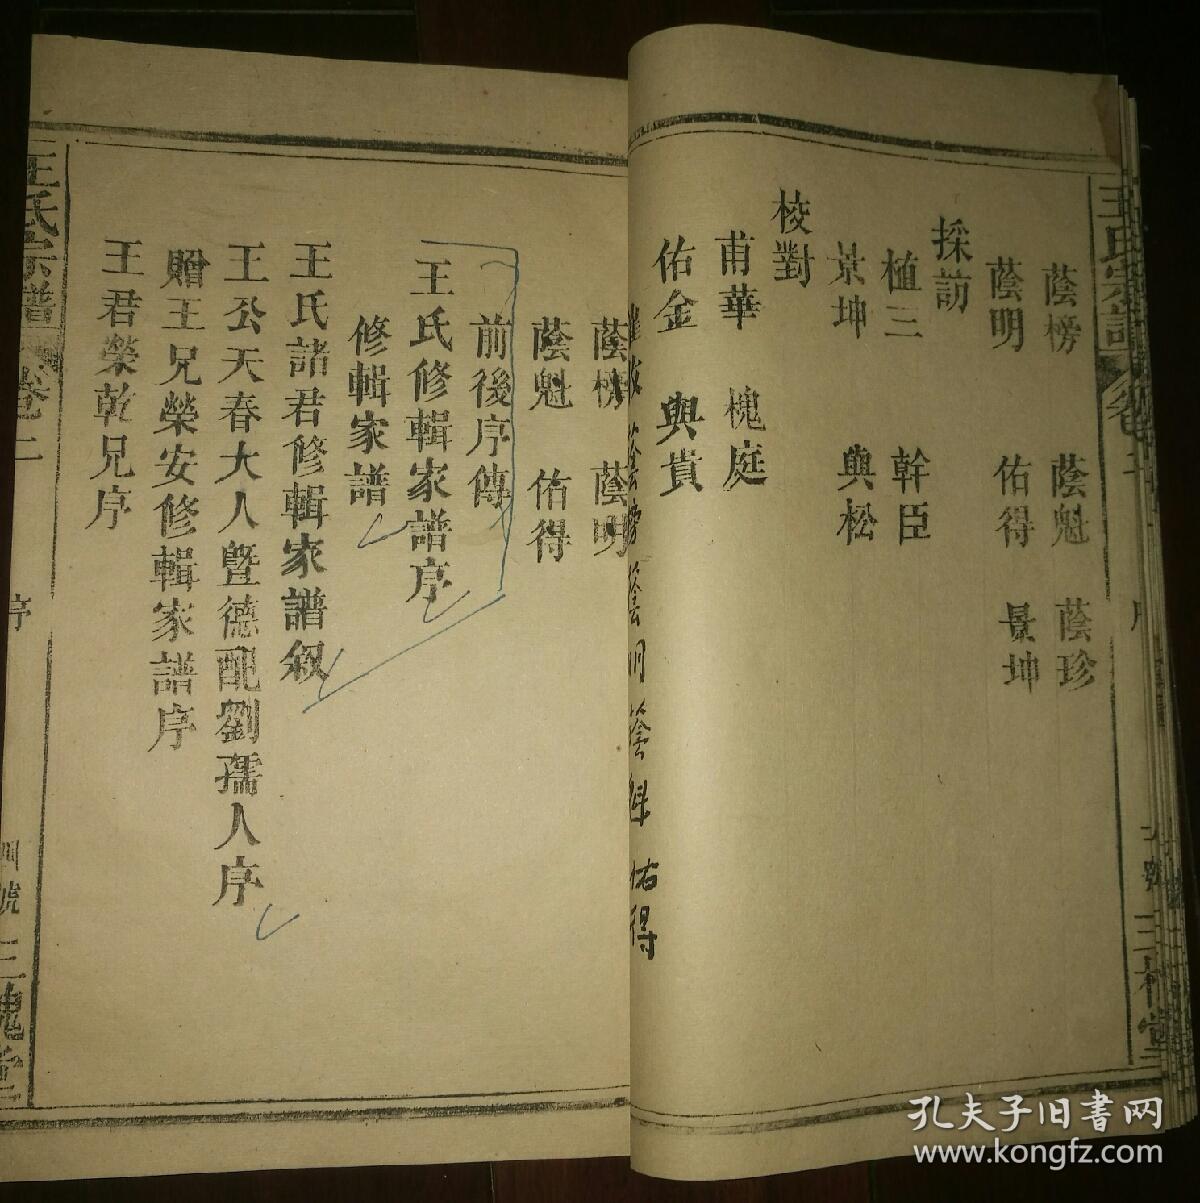 王氏宗譜
蔭榜 蔭魁 蔭珍
蔭明 佑得 景坤
採訪
植三 幹臣
景坤 與松
校對
甫華 槐庭
佑金 與貴
蔭明 蔭魁 佑得
蔭榜 蔭明
蔭魁 佑得
前後序傳
王氏修輯家譜序
修輯家譜
王氏諸君修輯家譜叙
王公天春大人暨德配劉孺人序
贈王兄榮安修輯家譜序
王君榮乾兄序
王氏宗譜 卷二 序 四號 三槐堂
孔夫子旧书网
www.kongfz.com